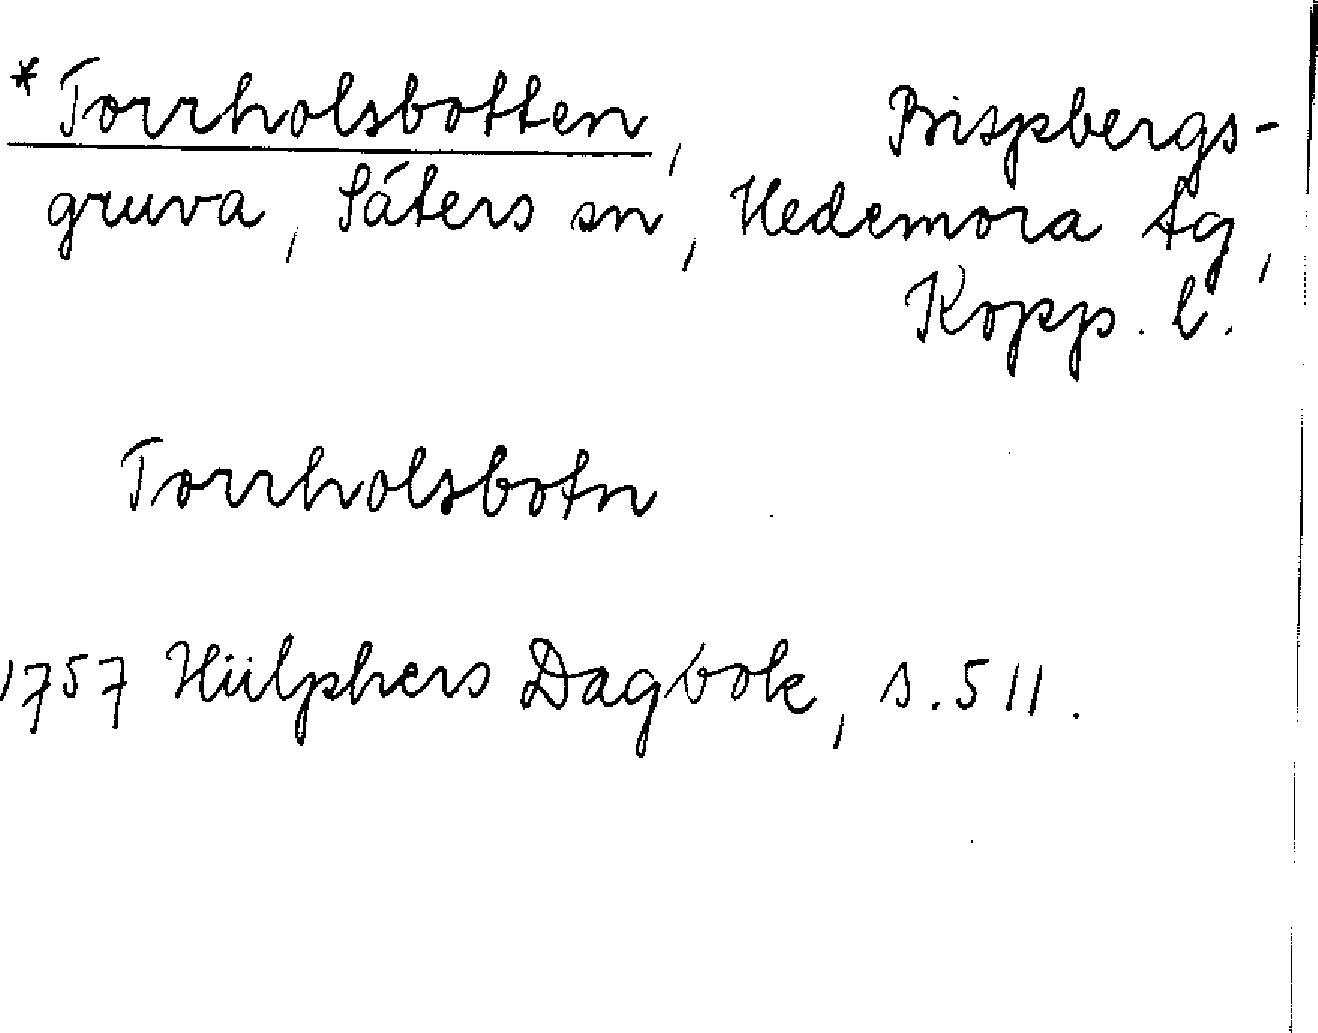 * Torrholsbotten, Bispbergs-
gruva, Säters sn, Hedemora tg,
Kopp. l.
Torrholsbotn
1757 Hülphers Dagbok, s. 511.